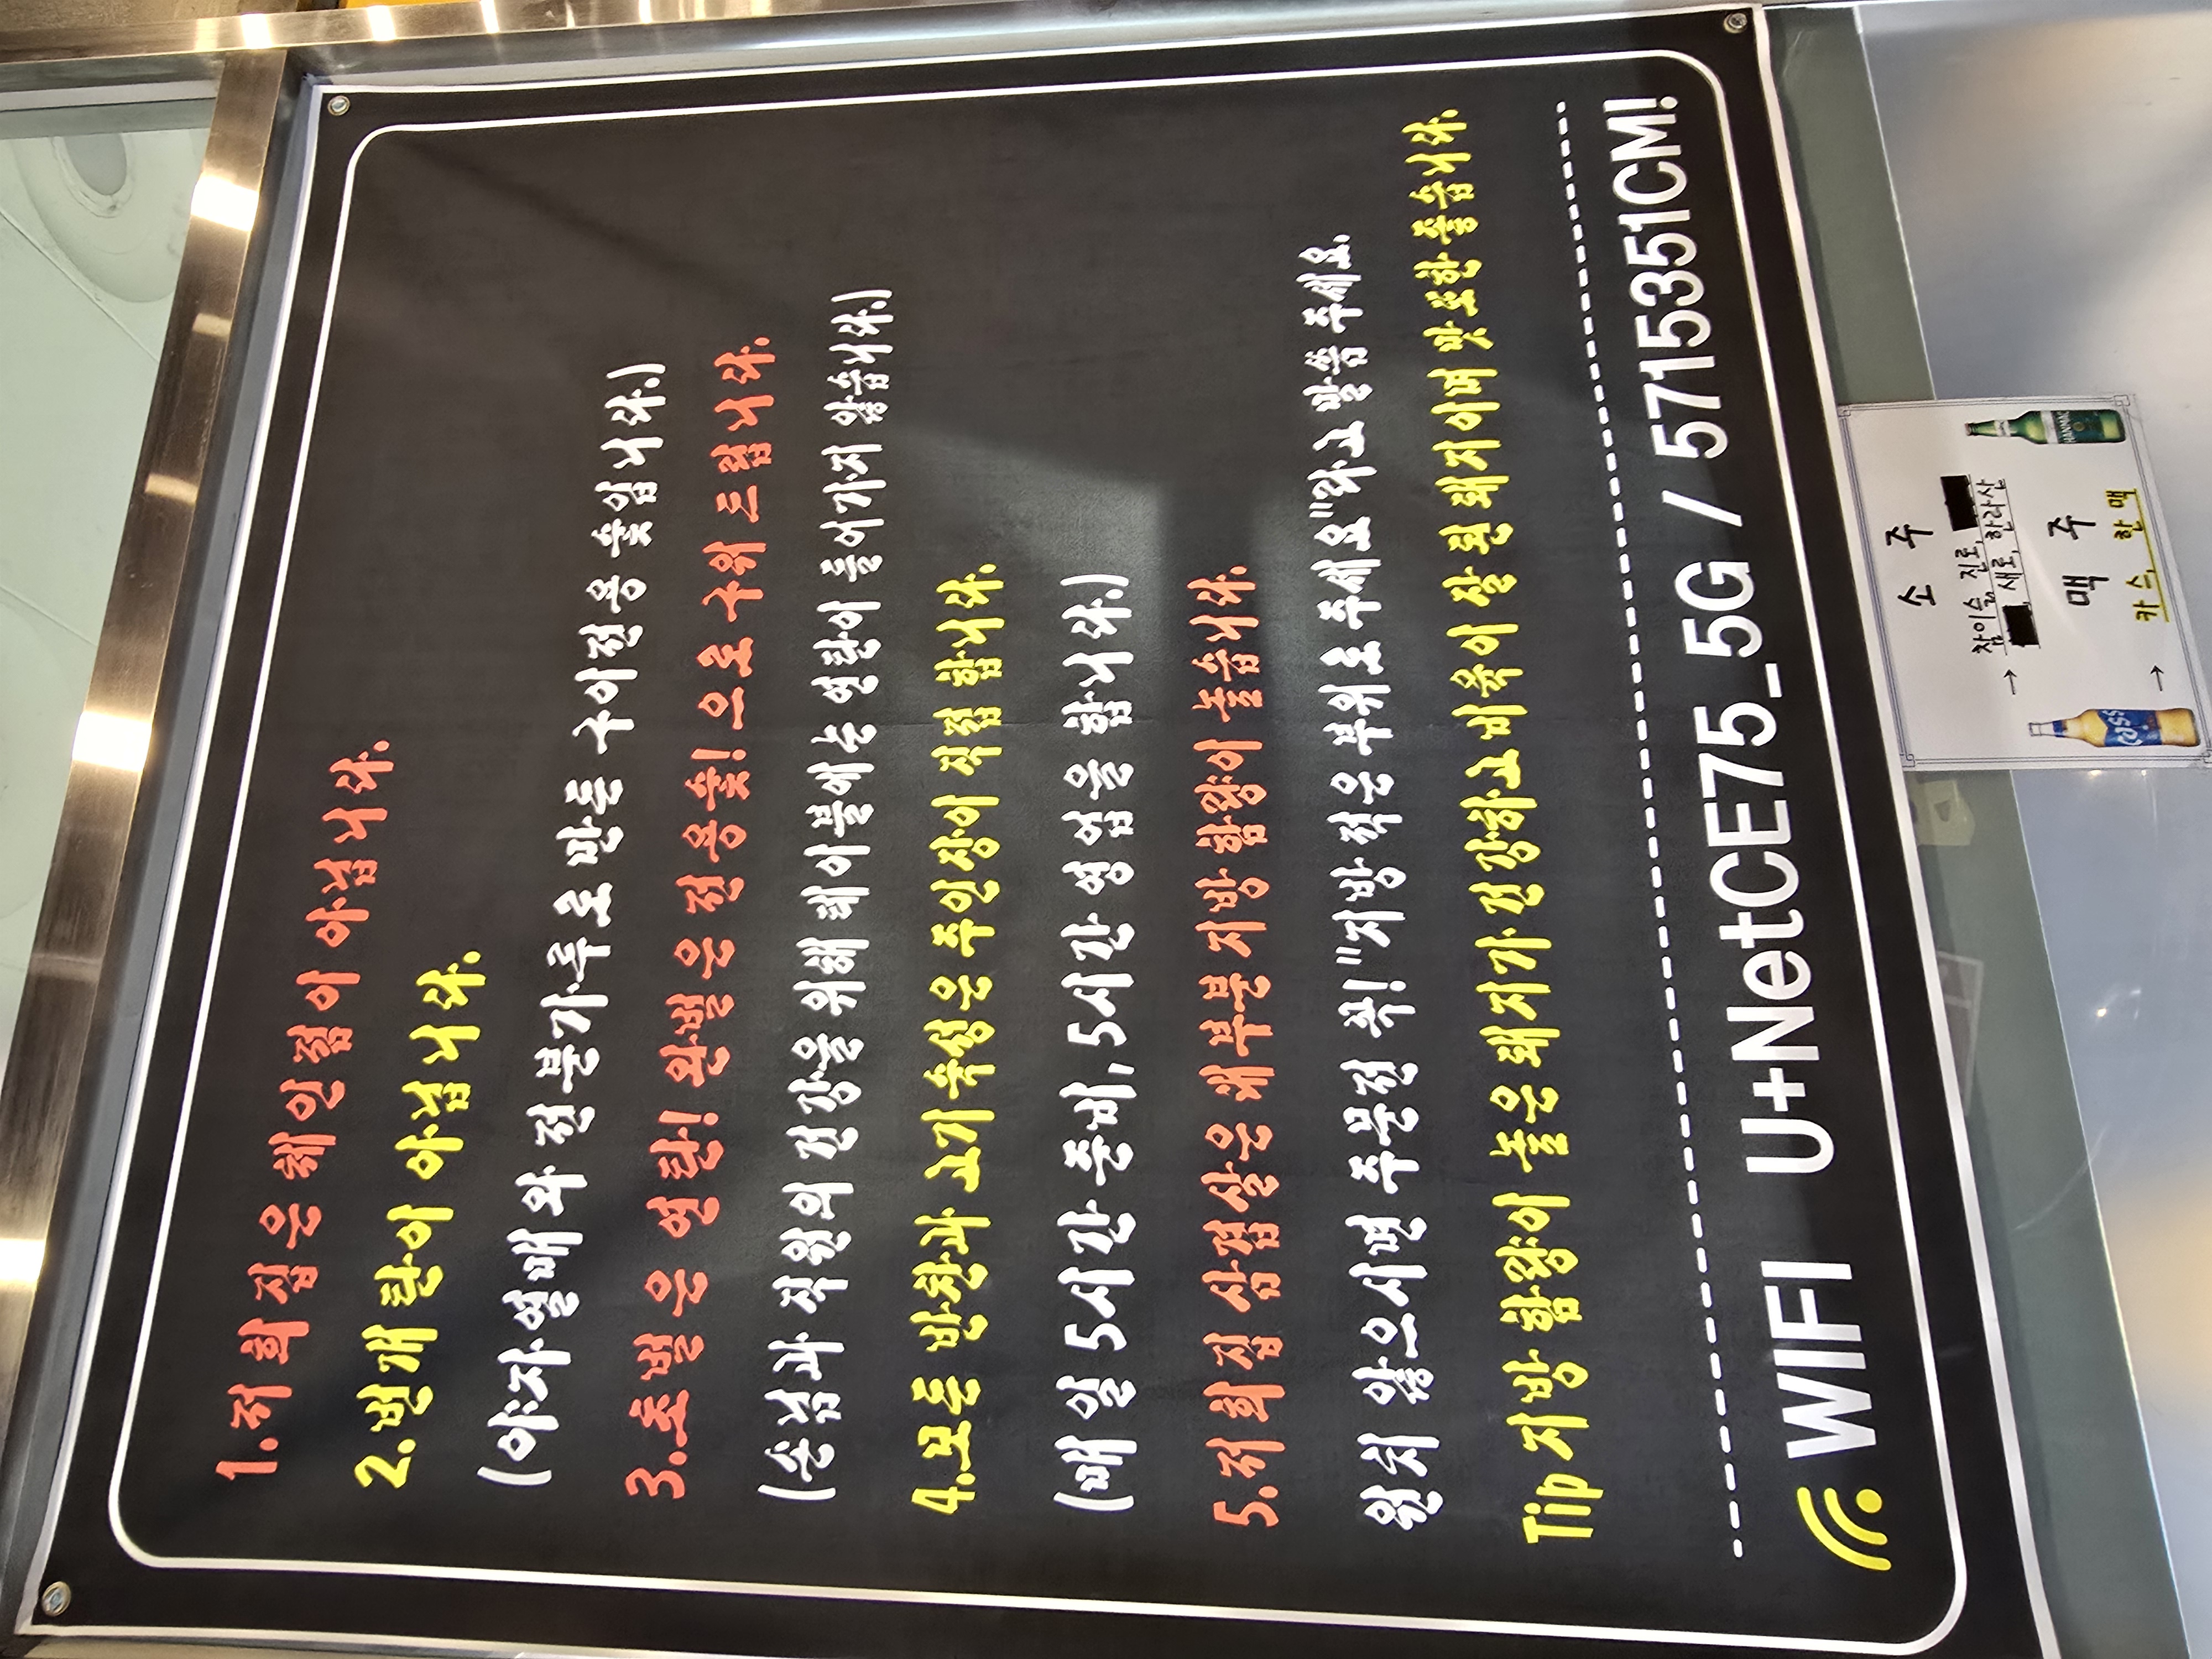 1.저희 집은 체인점이 아닙니다.
2.번개 탄이 아닙니다.
(야자열매와 전분가루로 만든 구이전용 숯입니다.)
3.초벌은 연탄! 완벌은 전용숯!으로 구워 드립니다.
(손님과 직원의 건강을 위해 테이블에는 연탄이 들어가지 않습니다.)
4.모든 반찬과 고기 숙성은 주인장이 직접 합니다.
(매일 5시간 준비, 5시간 영업을 합니다.)
5.저희 집 삼겹살은 대부분 지방 함량이 높습니다.
원치 않으시면 주문전 꼭! "지방 적은 부위로 주세요"라고 말씀 주세요.
Tip 지방 함량이 높은 돼지가 건강하고 비육이 잘 된 돼지이며 맛 또한 좋습니다.
WIFI U+NetCE75_5G / 5715351CM!
소 주
→ 참이슬, 진로,
새로, 한라산
맥 주
→ 카스, 한맥
Cass
HANMAC